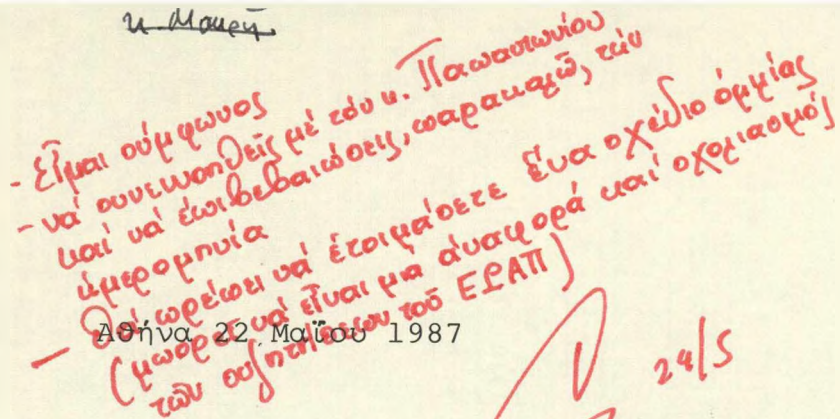 κ. Μακρή
- Εἶμαι σύμφωνος
- νά συνεννοηθεῖς μέ τόν κ. Παπαντωνίου
καί νά ἐπιβεβαιώσεις, παρακαλῶ, τήν
ἡμερομηνία
— Θά πρέπει νά ἑτοιμάσετε ἕνα σχέδιο ὁμιλίας
(μπορεῖ νά εἶναι μιά ἀναφορά καί σχολιασμός
τῶν συζητήσεων τοῦ ΕΡΑΠ)
Αθήνα 22 Μαΐου 1987
24/5